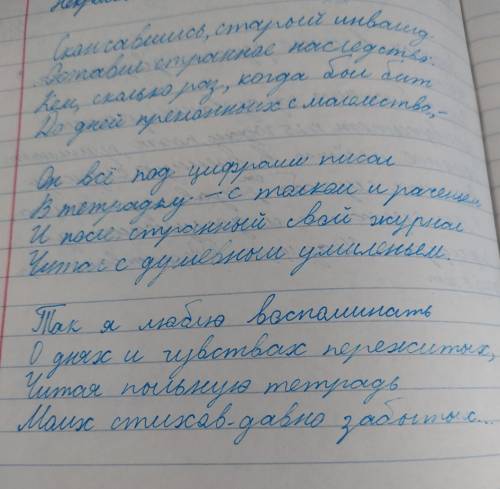 Некрас
Скончавшись, старый инвалид
Оставил странное наследство:
Кем, сколько раз, когда был бит
До дней преклонных с малолетства, –
Он всё под цифрами писал
В тетрадку – с толком и раченьем
И после странный свой журнал
Читал с душевным умиленьем.
Так я люблю воспоминать
О днях и чувствах пережитых,
Читая пыльную тетрадь
Моих стихов-давно забытых...